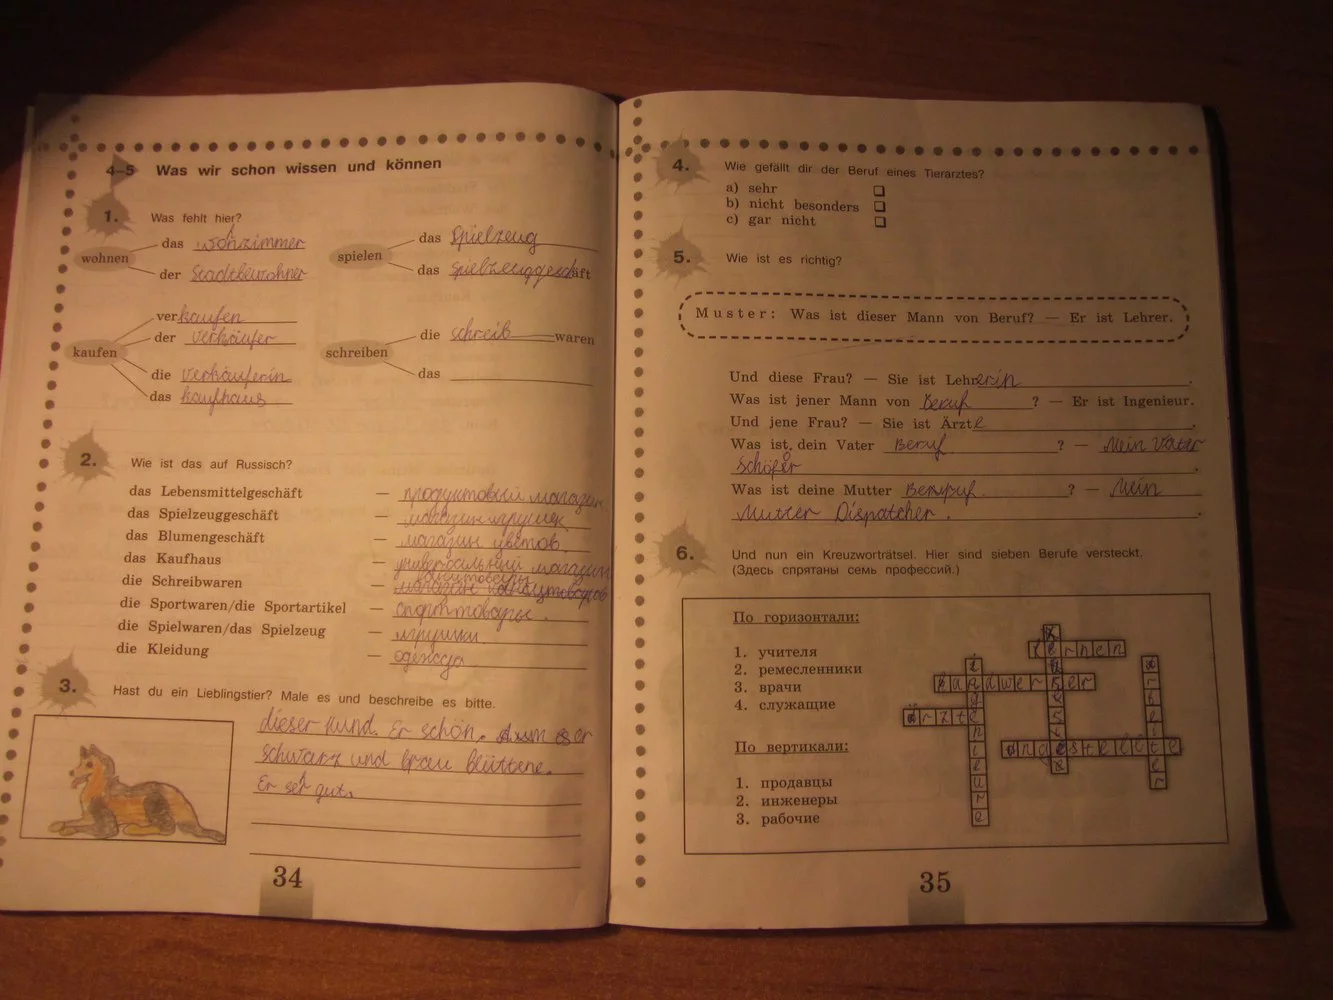 4–5 Was wir schon wissen und können
1. Was fehlt hier?
wohnen
das wohnzimmer
der Stadtbewohner
spielen
das Spielzeug
das Spielzeuggeschäft
kaufen
verkaufen
der verkäufer
die verkäuferin
das kaufhaus
schreiben
die schreib waren
das
2. Wie ist das auf Russisch?
das Lebensmittelgeschäft — продуктовый магазин
das Spielzeuggeschäft — магазин игрушек
das Blumengeschäft — магазин цветов
das Kaufhaus — универсальный магазин
die Schreibwaren — канцтовары
die Sportwaren/die Sportartikel — спорттовары.
die Spielwaren/das Spielzeug — игрушки
die Kleidung — одежда
3. Hast du ein Lieblingstier? Male es und beschreibe es bitte.
dieser Hund. Er schön. er
schwarz und brau
Er sehr gut.
34
4. Wie gefällt dir der Beruf eines Tierarztes?
a) sehr
b) nicht besonders
c) gar nicht
5. Wie ist es richtig?
Muster: Was ist dieser Mann von Beruf? — Er ist Lehrer.
Und diese Frau? — Sie ist Lehrerin.
Was ist jener Mann von Beruf? — Er ist Ingenieur.
Und jene Frau? — Sie ist Ärzte.
Was ist dein Vater Beruf? — Mein Vater
Schöfer.
Was ist deine Mutter ? — Mein
Mutter Dispatcher.
6. Und nun ein Kreuzworträtsel. Hier sind sieben Berufe versteckt.
(Здесь спрятаны семь профессий.)
По горизонтали:
1. учителя
2. ремесленники
3. врачи
4. служащие
По вертикали:
1. продавцы
2. инженеры
3. рабочие
35